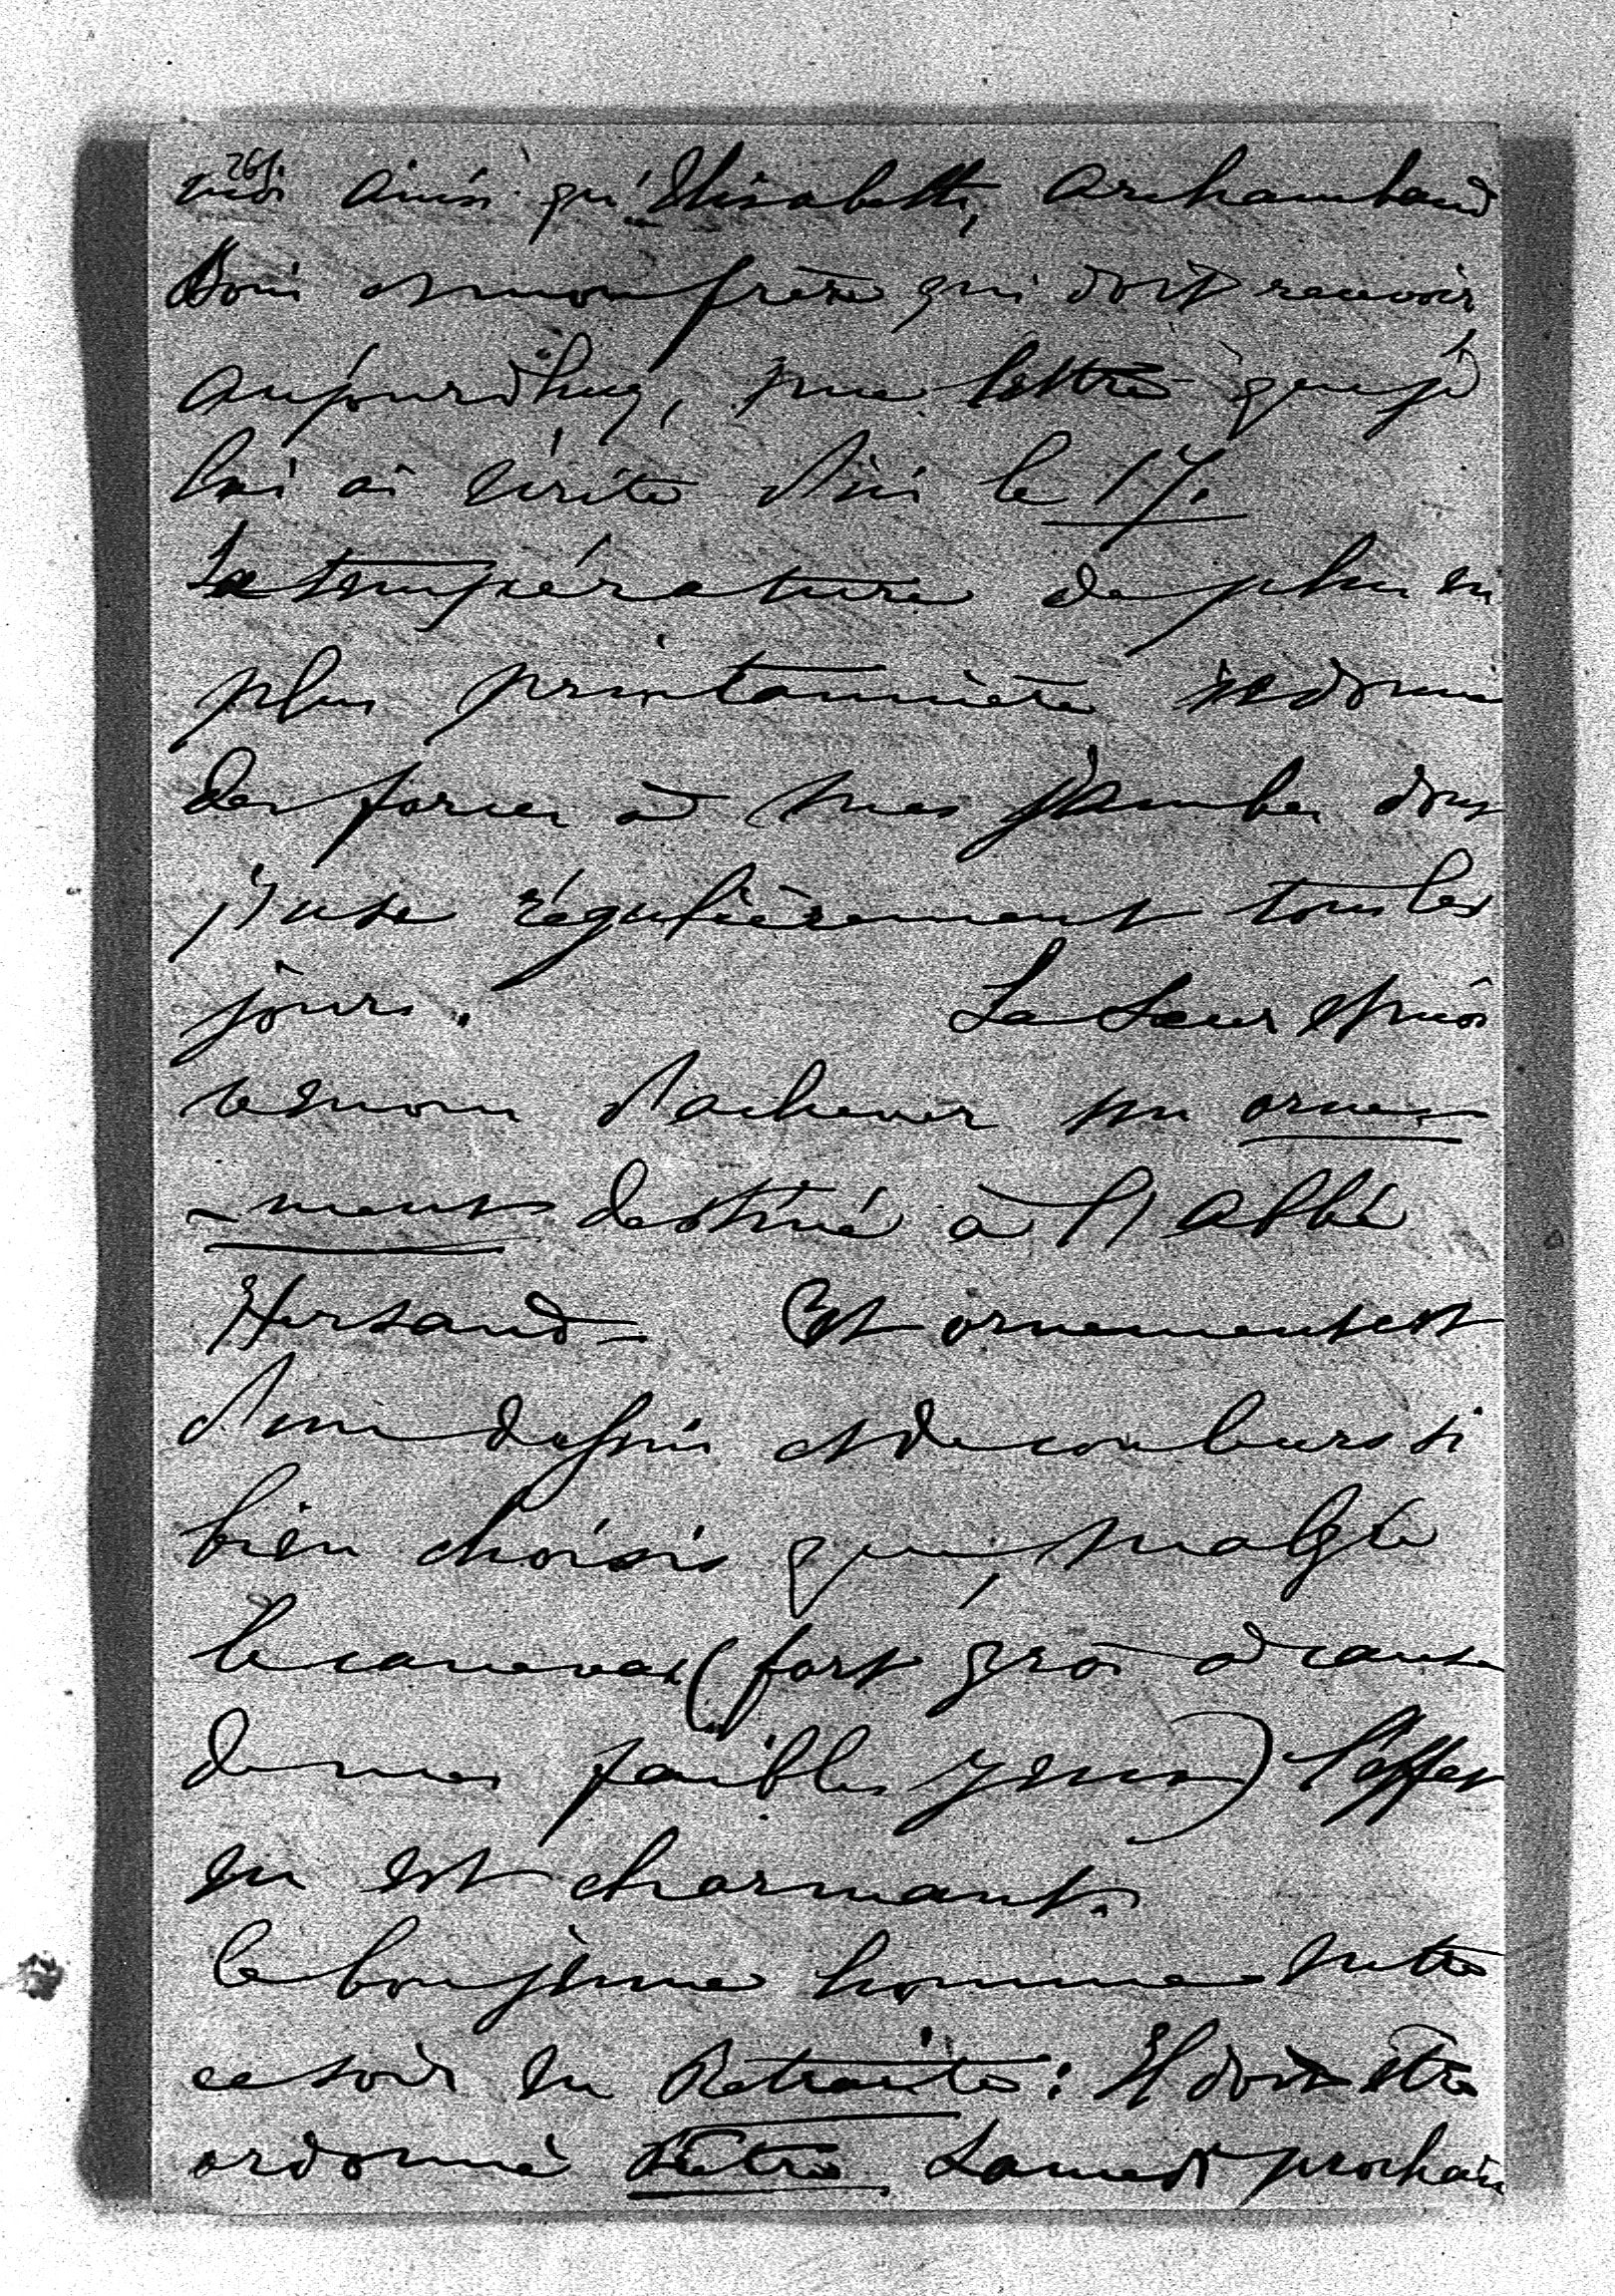 261.
moi ainsi qu'Elisabeth, Archambaud
Boni et mon frère qui doit recevoir
aujourd'huy, une lettre que je
lui ai écrite d'ici le 17.
La température de plus en
plus printannière redonne
des forces à mes jambes dont
j'use régulièrement tous les
jours. La Sœur et moi
venons d'achever un orne-
-ment destiné à l'Abbé
Hersand – Cet ornement est
d'un dessin et de couleurs si
bien choisis que malgré
le canevas (fort gros à cause
de mes faibles yeux) l'effet
en est charmant.
le bon jeune homme entre
ce soir en Retraite : Il doit être
ordonné Prêtre Samedi prochain